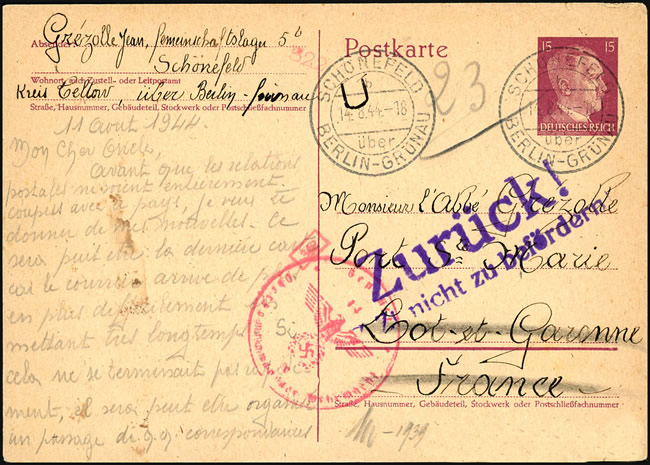 Absender:
Grézolle Jean, Gemeinschaftslager 5b
Schönefeld
Wohnort, auch Zustell- oder Leitpostamt
Kreis Teltow über Berlin-Grünau
Straße, Hausnummer, Gebäudeteil, Stockwerk oder Postschließfachnummer
11 Août 1944
Mon Cher Oncle,
avant que les relations
postales ne soient entièrement
coupées avec le pays, je veux te
donner de mes nouvelles. Ce
sera peut être la dernière
car le courrier arrive de
en plus difficilement
mettant très longtemps
cela ne se terminait pas
ment, il sera peut être organisé
un passage de correspondances
Postkarte
15
15
DEUTSCHES REICH
SCHÖNEFELD
14.8.44.-18
über
BERLIN-GRÜNAU
SCHÖNEFELD
über
BERLIN-GRÜNAU
U
23
Monsieur l'Abbé Grézolle
Port Ste Marie
Lot-et-Garonne
France
Zurück!
nicht zu befördern
Straße, Hausnummer, Gebäudeteil, Stockwerk oder Postschließfachnummer
1939